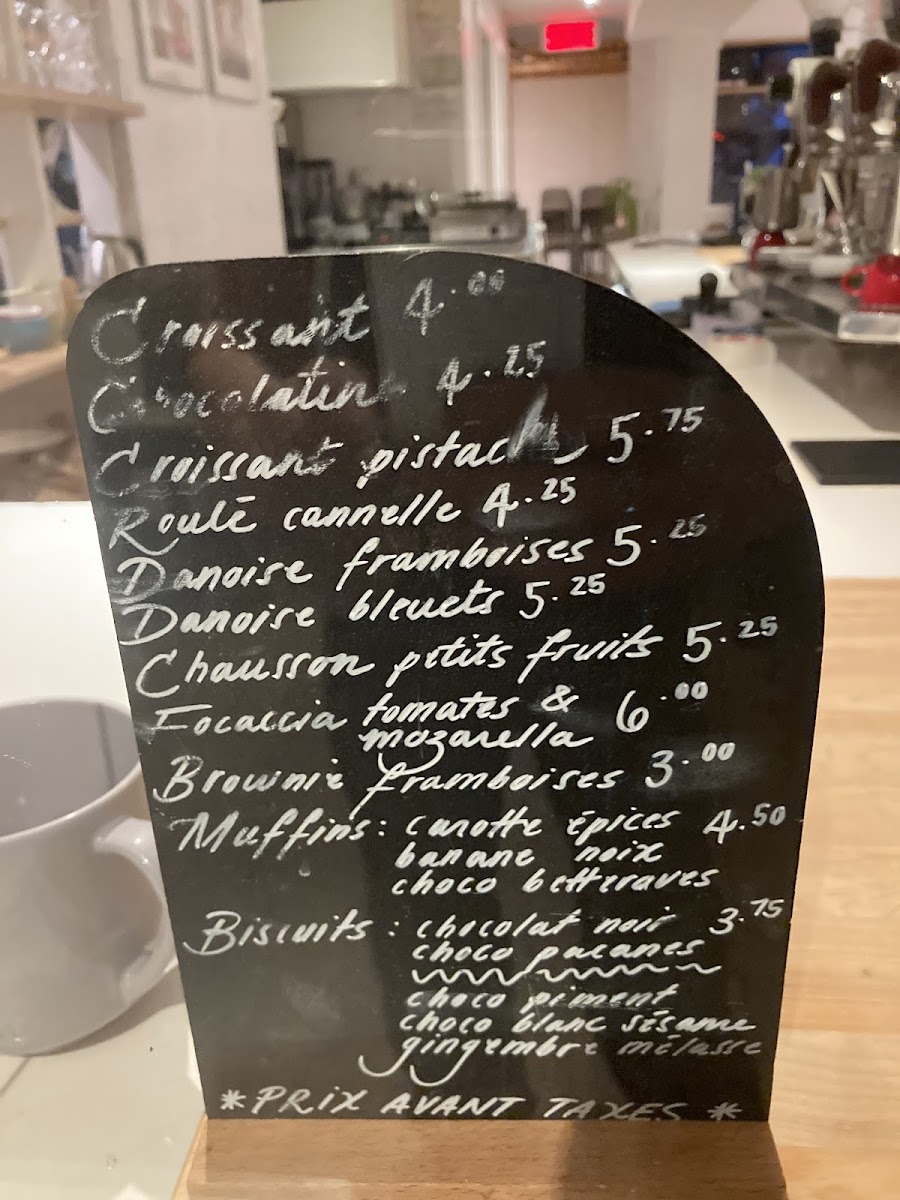 Croissant 4.00
Chocolatine 4.25
Croissant pistache 5.75
Roulé cannelle 4.25
Danoise framboises 5.25
Danoise bleuets 5.25
Chausson petits fruits 5.25
Focaccia tomates & 6.00
mozarella
Brownie framboises 3.00
Muffins: carotte épices 4.50
banane noix
choco betteraves
Biscuits: chocolat noir 3.75
choco pacanes
choco piment
choco blanc sésame
gingembre mélasse
*PRIX AVANT TAXES *